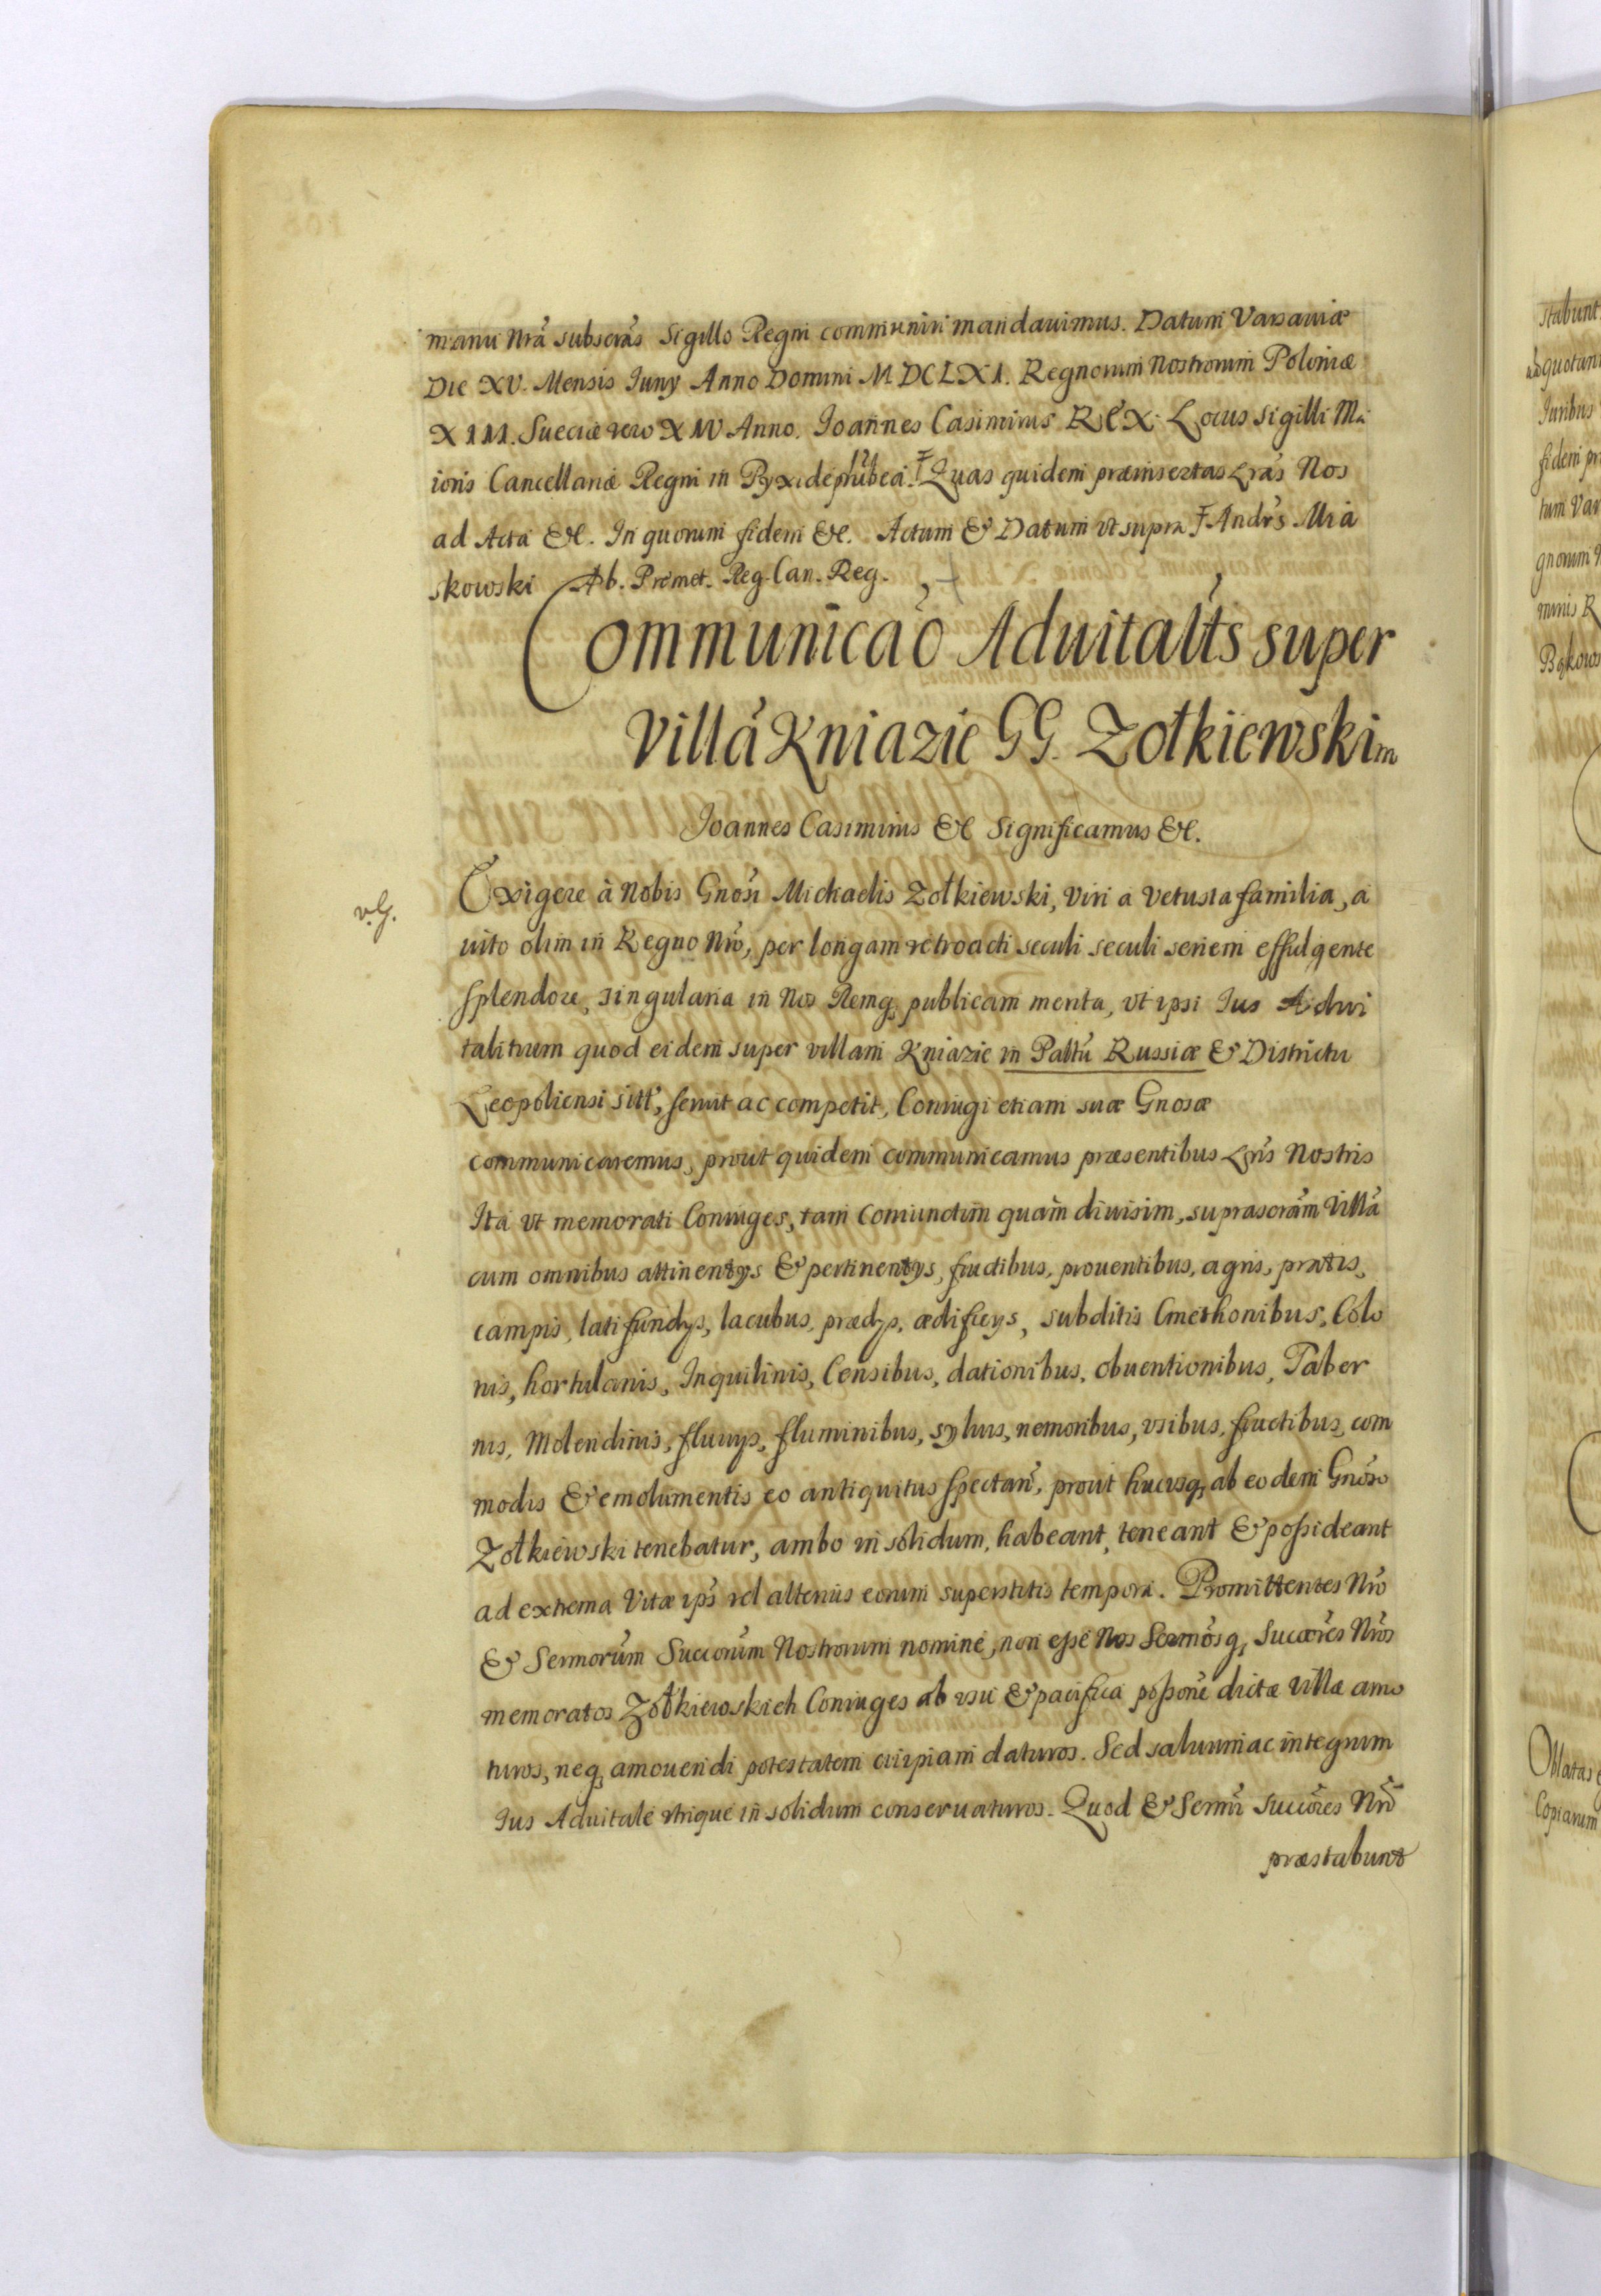 manu Nrá subscrás Sigillo Regni communiri mandauimus. Datum Varsauiæ
Die XV. Mensis Iuny Anno Domini M DCLXI. Regnorum Nostrorum Poloniæ
XIII. Sueciæ vero XIV Anno. Ioannes Casimirus REX. Locus Sigilli Ma
ioris Cancellariæ Regni in Pyxide rubea. Quas quidem præinsertas Lrás Nos
ad Acta &c. In quorum fidem &c. Actum & Datum vt supra Andrs Mia
skowski Ab. Premet. Reg. Can. Reg.
Communicaõ Aduitalĩts super
Villã Kniazie GG. Zołkiewskim
Ioannes Casimirus &c Significamus &c.
v.G.
Exigere à Nobis Gnosi Michaelis Zołkiewski, Viri a Vetusta familia, a
uito olim in Regno Nrõ, per longam retroacti seculi seculi seriem effulgente
splendore, singularia in Nos Remq publicam merita, vt ipsi Ius Adui
talitium quod eidem super villam Kniazie in Pałtu Russiæ & Districtu
Leopoliensi sitt, seruit ac competit, Coniugi etiam suæ Gnosæ
communicaremus, prout quidem communicamus præsentibus Lris Nostris
Ita vt memorati Coniuges, tam coniunctim quàm diuisim, suprascrãm Villã
cum omnibus attinentys & pertinentys, fructibus, prouentibus, agris, pratis,
campis, latifundys, lacubus, prædys, ædificys, subditis Cmethonibus, Colo
nis, hortulanis, Inquilinis, Censibus, dationibus, obuentionibus, Taber
nis, Molendinis, fluuys, fluminibus, syluis, nemoribus, vsibus, fructibus, com
modis & emolumentis eo antiquitus spectan, prout hucusq, ab eodem Gnoso
Zołkiewski tenebatur, ambo in solidum, habeant, teneant & possideant
ad extrema Vitæ ips vel alterius eorum superstitis tempora. Promittentes Nro
& Sermorum Succorum Nostrorum nomine, non esse Nos Sermosq, Succores Nros
memoratos Zołkiewskich Coniuges ab vsu & pacifica possone dictæ Villæ amo
turos, neq, amouendi potestatem cuipiam daturos. Sed saluum ac integrum
Ius Aduitale vtrique in solidum conseruaturos. Quod & Sermi Succores Nri
præstabunt
stabunt
quotan
Iuribus
fidem pr
tum Var
gnorum
minis R
Bąkows
Oblatas
Copiarum